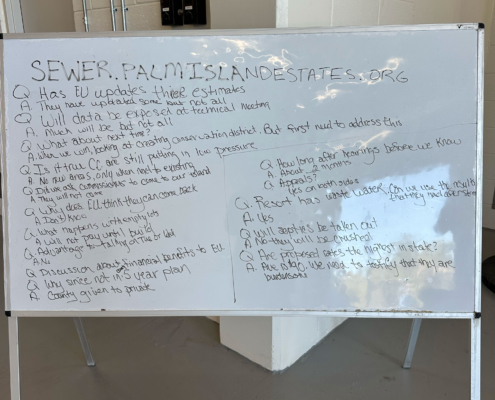 SEWER.PALMISLANDESTATES.ORG
Q Has EU updates three estimates
A. They have updated some but not all
Q Will data be exposed at technical meeting
A. Much will be but not all
Q What about next time?
A. When we win, looking at creating conservation district. But first need to address this
Q. Is it true CC are still putting in low pressure
A. No new areas, only when next to existing
Q. Did we ask commissioners to come to our island
A. They will not come
Q. Why does EU think they can come back
A. Don't know
Q. What happens with empty lots
A. Will not pay until build
Q. Advantage to talking at
A. No
Q. Discussion about financial benefits to EU
Q. Why since not in 5 year plan
A. County given to private
Q. How long after hearings before we know
A. About 2 months
Q. Appeals?
Yes on both sides
Q. Resort has waste water. Can we use the results
that they had
A. Yes
Q. Will septics be taken out
A. No they will be crushed
Q. Are proposed rates the highest in state?
A. We need to testify that they are